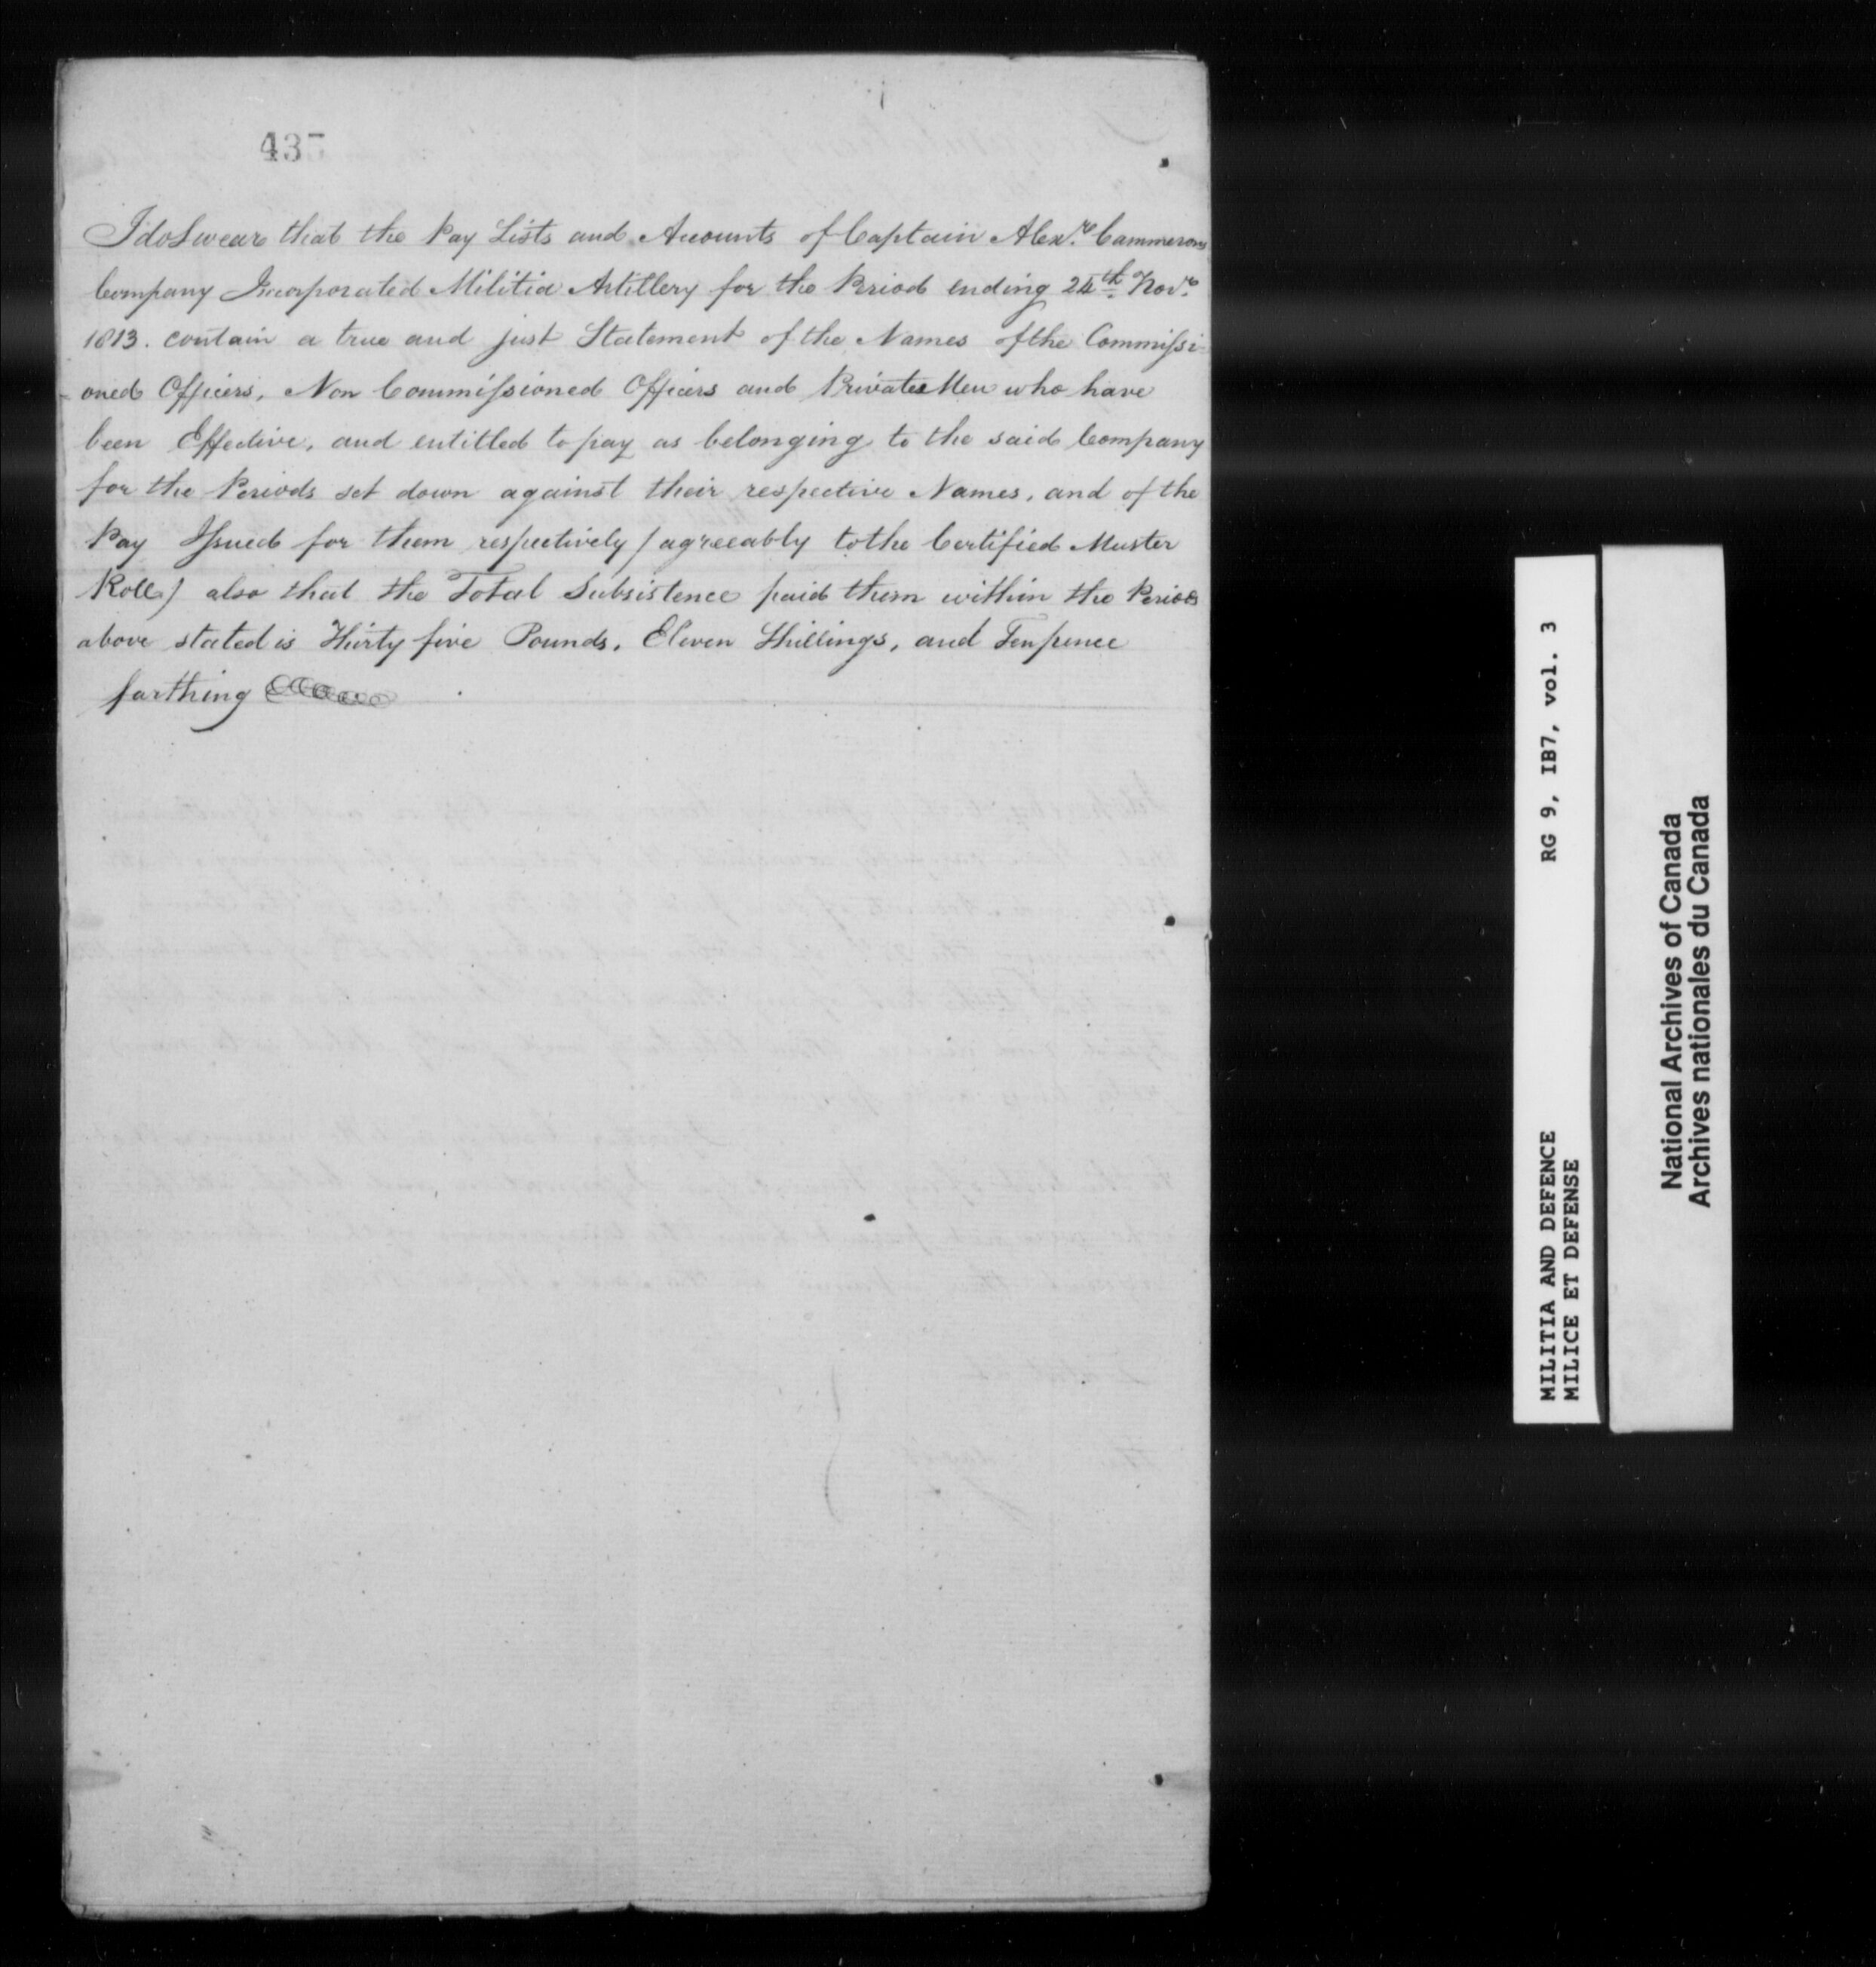 437
I do Swear that the Pay Lists and Accounts of Captain Alexr. Cammerons
Company Incorporated Militia Artillery for the Period ending 24th Novr.
1813. contain a true and just Statement of the Names of the Commissi-
oned Officers, Non Commissioned Officers and Private Men who have
been Effective, and entitled to pay as belonging to the said Company
for the Periods set down against their respective Names, and of the
Pay Issued for them respectively / agreeably to the Certified Muster
Roll) also that the Total Subsistence paid them within the Period
above stated is Thirty five Pounds, Eleven Shillings, and Tenpence
farthing
MILITIA AND DEFENCE RG 9, IB7, vol. 3
MILICE ET DEFENSE
National Archives of Canada
Archives nationales du Canada